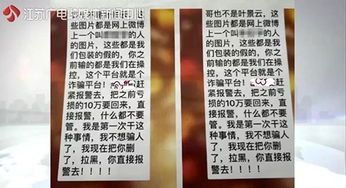 江苏广电
些图片都是网上微博
上一个叫
的人
的图片，这些都是我
们包装的假的，你之
前输的都是我们在操
控，这个平台就是个
诈骗平台！
赶
紧报警去，把之前亏
损的10万要回来，直
接报警，什么都不要
管了。我是第一次干这
种事情，我不想骗人
了，我现在把你删
了，拉黑，你直接报
警去！！！！
哥也不是叶景云，这
些图片都是网上微博
上一个叫
的人
的图片，这些都是我
们包装的假的，你之
前输的都是我们在操
控，这个平台就是个
诈骗平台！
赶
紧报警去，把之前亏
损的10万要回来，直
接报警，什么都不要
管了。我是第一次干这
种事情，我不想骗人
了，我现在把你删
了，拉黑，你直接报
警去！！！！